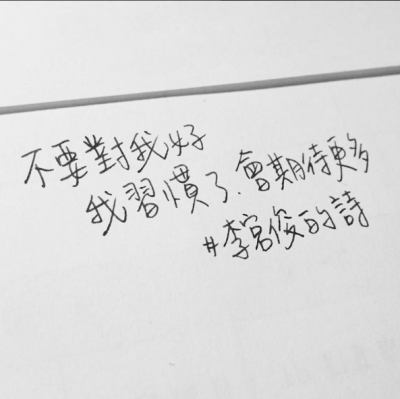 不要對我好
我習慣了.會期待更多
#李宮俊的詩